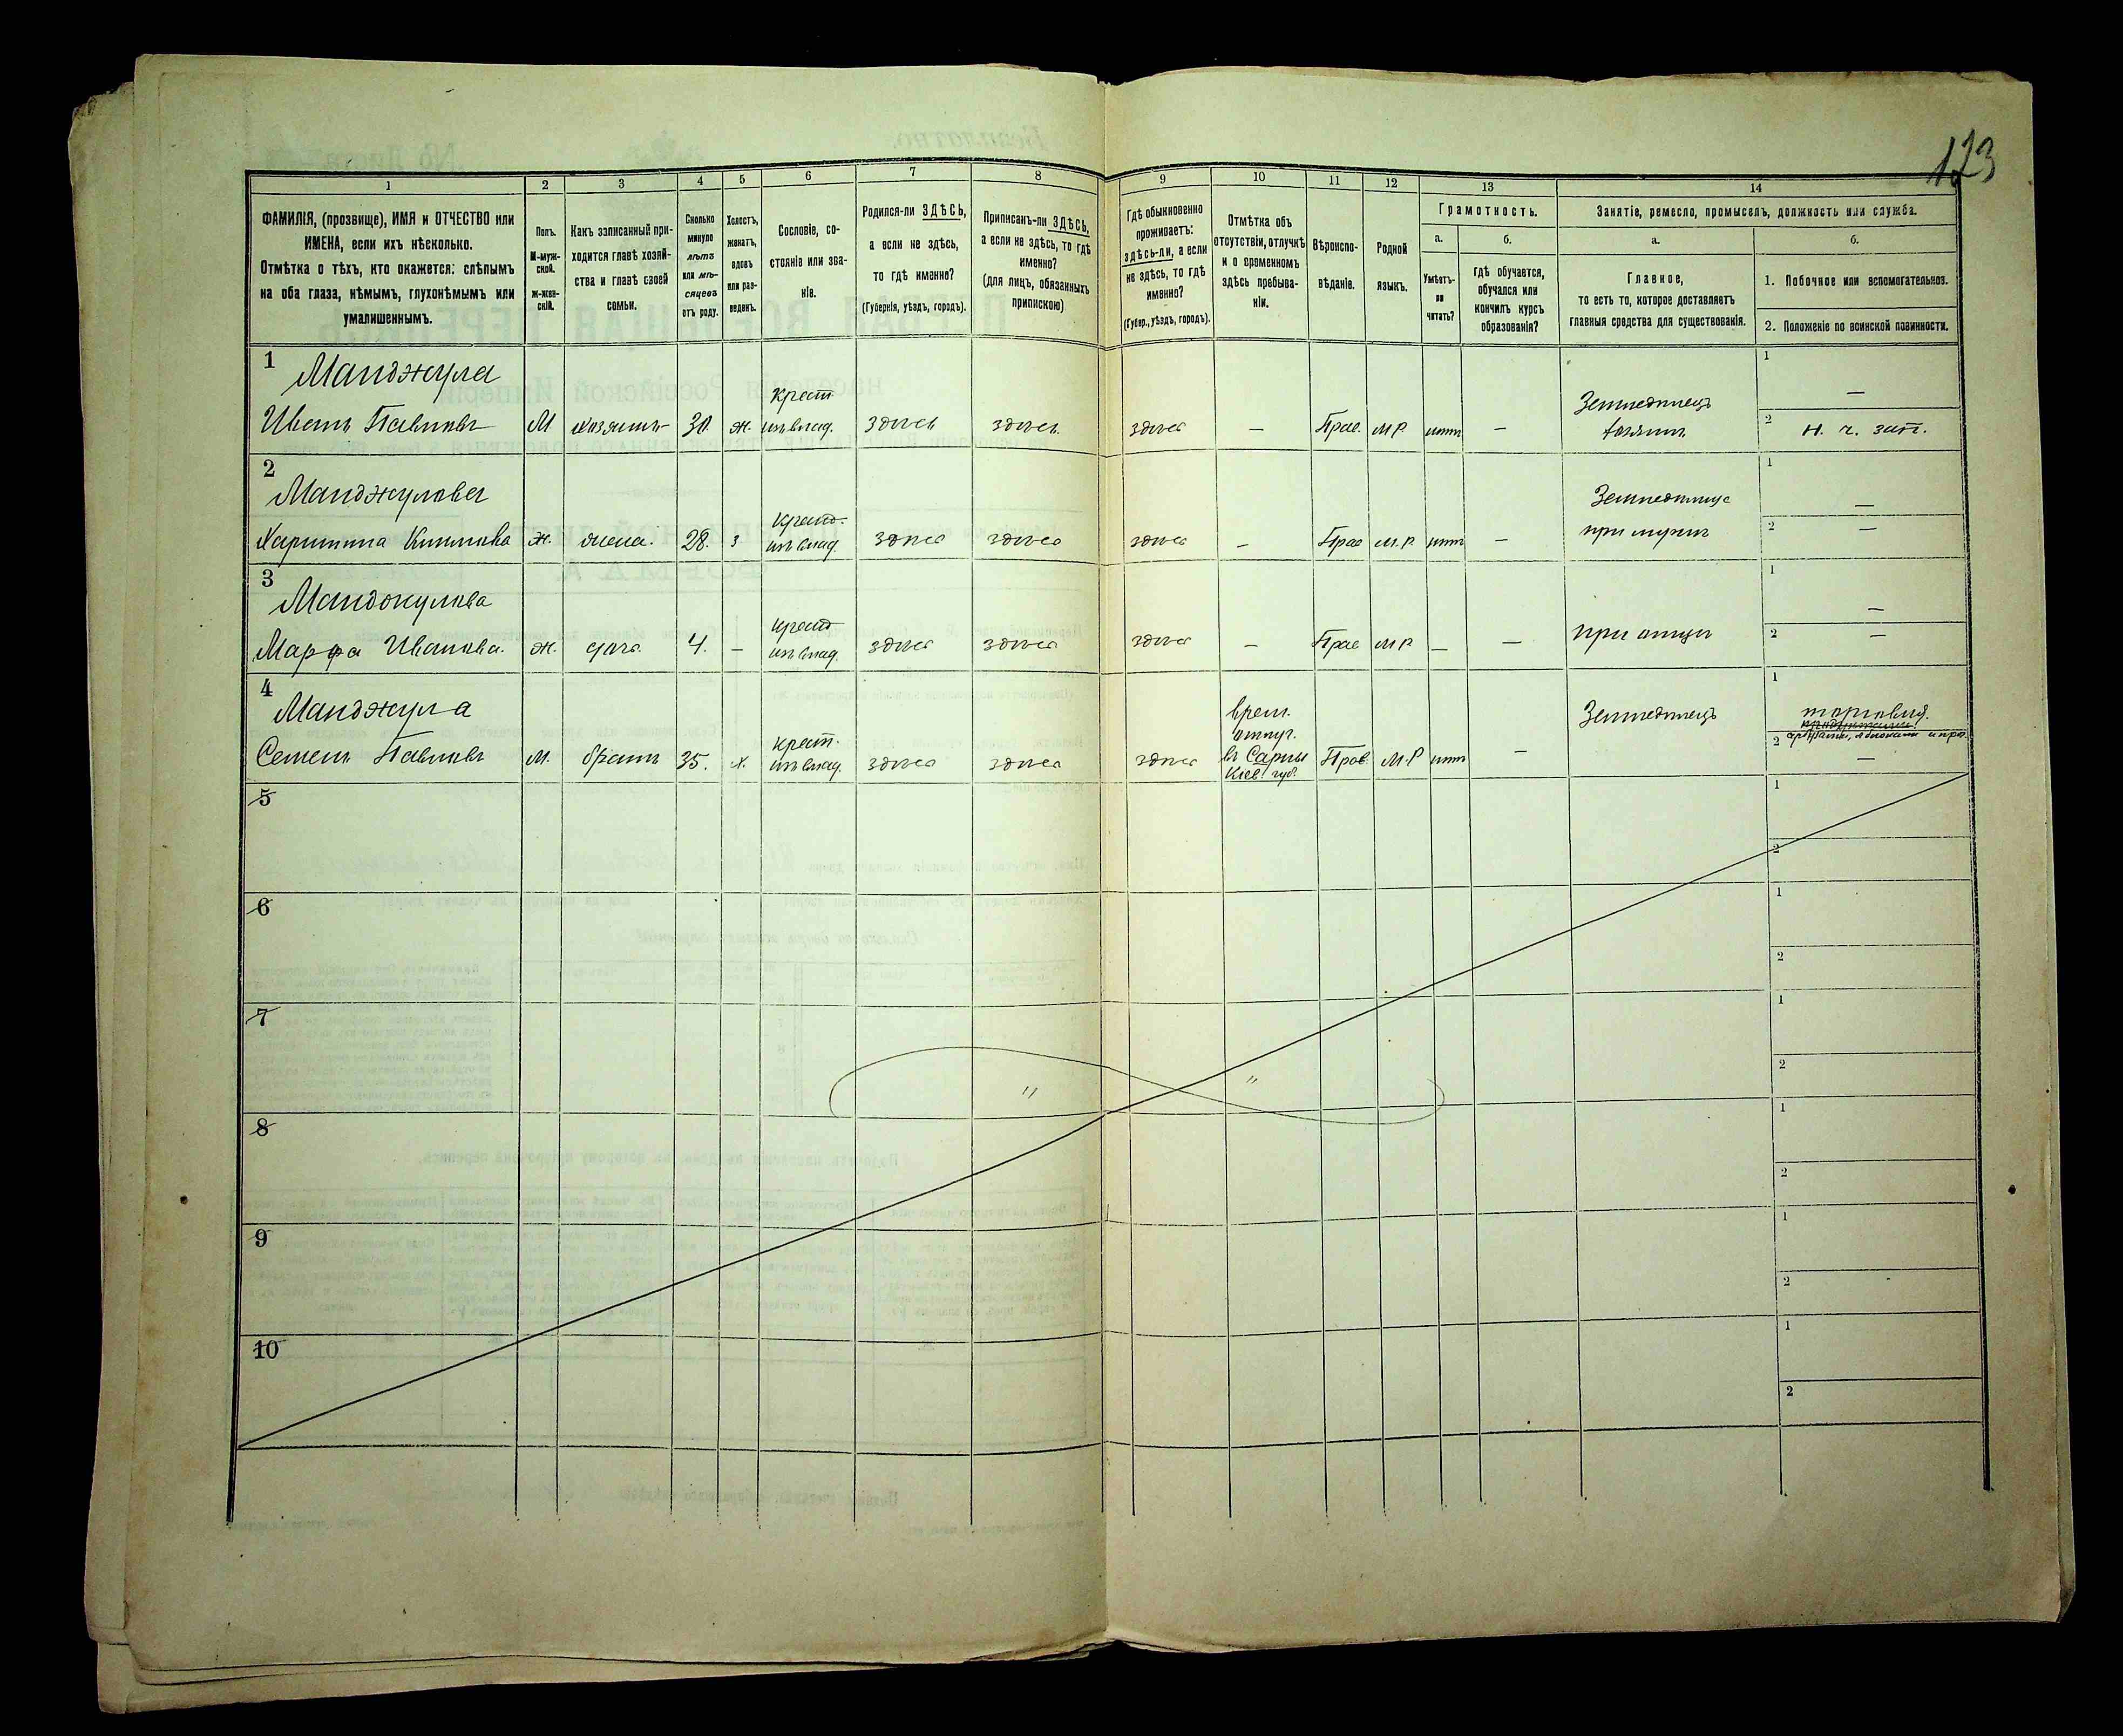 123
1
2
3
4
5
6
7
8
9
10
11
12
13
14
ФАМИЛІЯ, (прозвище), ИМЯ и ОТЧЕСТВО или
ИМЕНА, если ихъ нѣсколько.
Отмѣтка о тѣхъ, кто окажется: слѣпымъ
на оба глаза, нѣмымъ, глухонѣмымъ или
умалишеннымъ.
Полъ.
М-муж-
ской.
ж-жен-
скій.
Какъ записанный при-
ходится главѣ хозяй-
ства и главѣ своей
семьи.
Сколько
минуло
лѣтъ
или мѣ-
сяцевъ
отъ роду.
Холостъ,
женатъ,
вдовъ
или раз-
веденъ.
Сословіе, со-
стояніе или зва-
ніе.
Родился-ли ЗДѢСЬ,
а если не здѣсь,
то гдѣ именно?
(Губернія, уѣздъ, городъ).
Приписанъ-ли ЗДѢСЬ,
а если не здѣсь, то гдѣ
именно?
(для лицъ, обязанныхъ
припискою)
Гдѣ обыкновенно
проживаетъ:
здѣсь-ли, а если
не здѣсь, то гдѣ
именно?
(Губер., уѣздъ, городъ).
Отмѣтка объ
отсутствіи, отлучкѣ
и о временномъ
здѣсь пребыва-
ніи.
Вѣроиспо-
вѣданіе.
Родной
языкъ.
Грамотность.
а.
Умѣетъ-
ли
читать?
б.
гдѣ обучается,
обучался или
кончилъ курсъ
образованія?
Занятіе, ремесло, промыселъ, должность или служба.
а.
Главное,
то есть то, которое доставляетъ
главныя средства для существованія.
б.
1. Побочное или вспомогательное.
2. Положеніе по воинской повинности.
1 Манджула
Иванъ Павловъ М хозяинъ 30. ж. Крест. изъ влад. здѣсь здѣсь здѣсь — Прав. М.Р. нѣтъ — Земледѣлецъ хозяинъ 1 — 2 н. ч. зап.
2 Манджулова
Харитина Климова ж. жена. 28. з. Крест. изъ влад. здѣсь здѣсь здѣсь — Прав М.Р нѣтъ — при мужѣ 1 — 2 —
3 Манджулова
Марфа Иванова. ж. дочь. 4. — Крест изъ влад. здѣсь здѣсь здѣсь — Прав М.Р — — при отцѣ 1 — 2 —
4 Манджула
Семенъ Павловъ М. братъ 35. х. Крест. изъ влад. здѣсь здѣсь здѣсь врем. отлуч. въ Сарны Кіев. губ. Прав М.Р нѣтъ — Земледѣлецъ 1 2 —
5 1 2
6 1 2
7 1 2
8 1 2
9 1 2
10 1 2